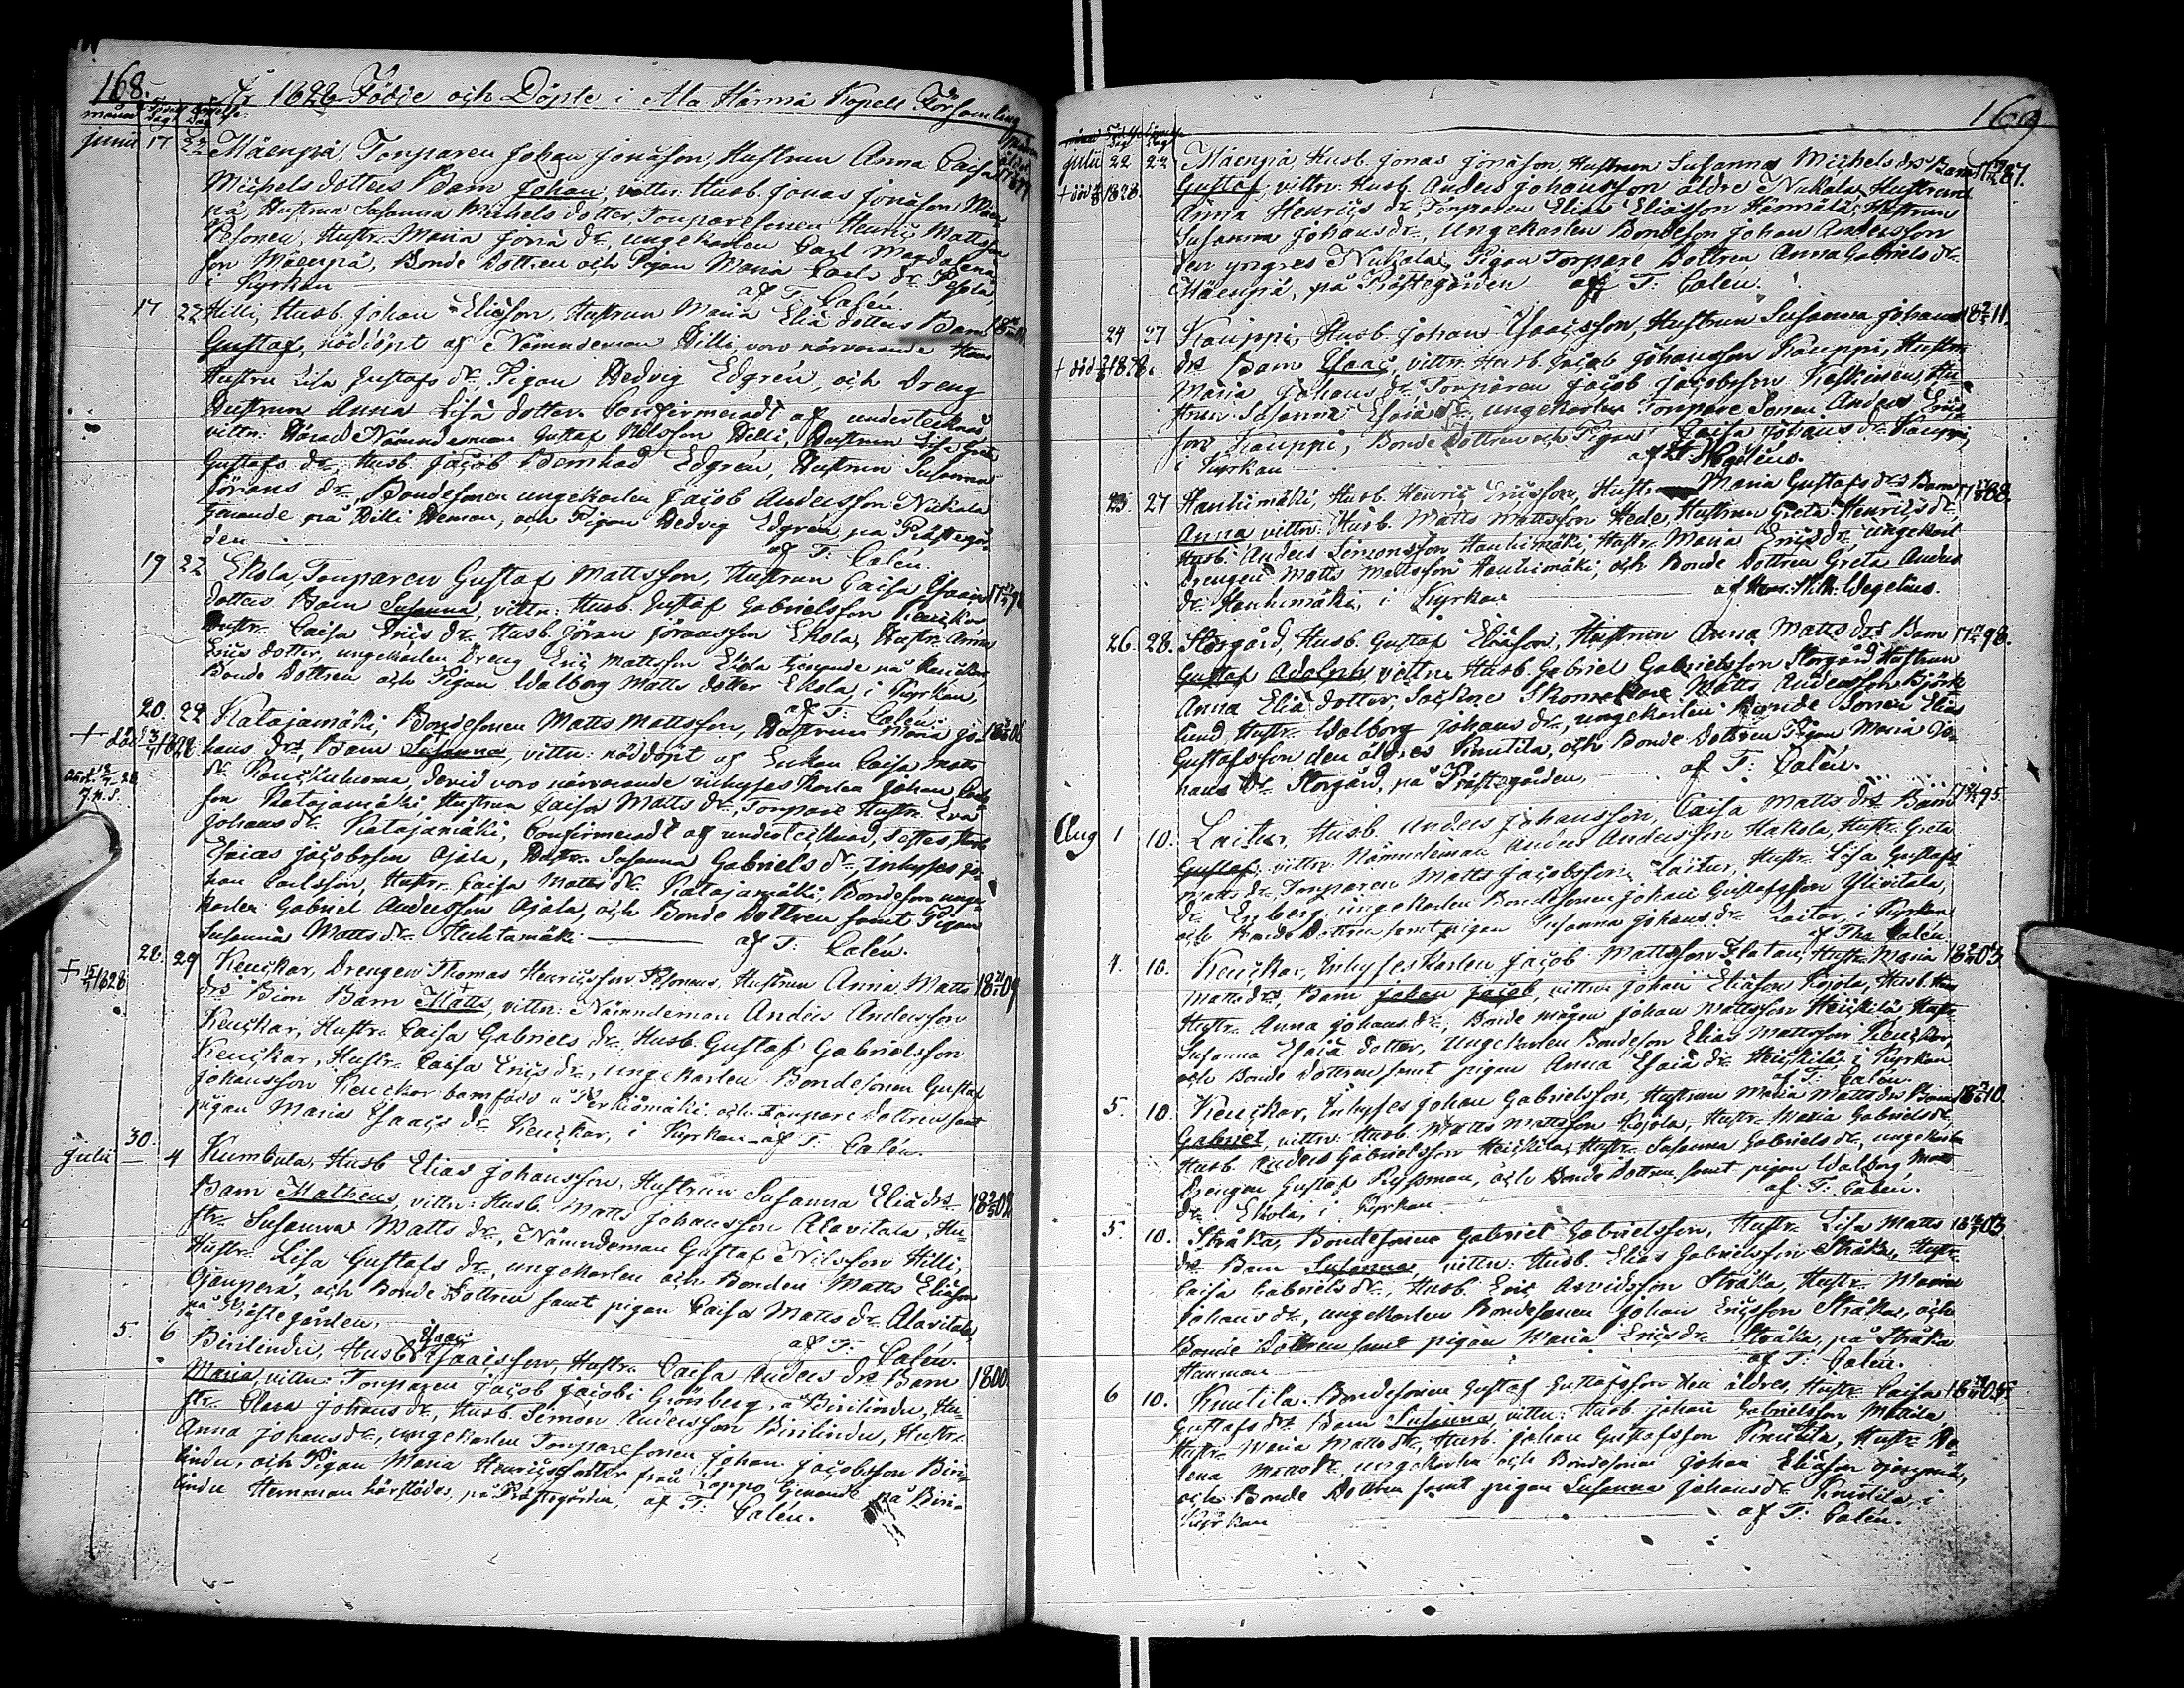 168.
År 1828 Födde och Döpte i Ala Härmä Kapell Församling
månad Födelse Dag Döpelse Dag
junii 17 22 Mäenpä, Torparen Johan Jonasson, Hustrun Anna Caisa
Michelsdotters Barn Johan, vittn: Husb. Jonas Jonasson Mäen-
pä, Hustrun Susanna Michels dotter, Torparesonen Henric Mattsson
Pesonen, Hustr. Maria Jöria dr., ungekarlen Carl Magdalena
son Mäenpä, Bonde Dottren och Pigan Maria Carls dr. Pesola
i Kyrkan af T: Calén.
17 22 Hilli, Husb. Johan Eliasson, Hustrun Maria Eliä dotters Barn
Gustaf, nöddöpt af Nämndeman Hilli, voro närvarande Hans
Hustru Lisa Gustafs dr., Pigan Hedvig Edgrén, och Dreng
Hustrun Anna Lisä dotter. Confirmeradt af undertecknad
vittn: Härads Nämndeman Gustaf Nilsson Hilli, Hustrun Lisa Greta
Gustafs dr., Husb. Jacob Bernhad Edgrén, Hustrun Susanna
Jörans dr., Bondesonen ungekarlen Jacob Andersson Nickola
tjenande på Hilli Heman, och Pigan Hedvig Edgrén, på Prästegår-
den af T: Calén.
19 22 Ekola, Torparen Gustaf Mattsson, Hustrun Caisa Esaiæ 1798
dotters Barn Susanna, vittn: Husb. Gustaf Gabrielsson Keuckar
Hustr. Caisa Erics dr. Husb. Jöran Jöransson Ekola, Hustr. Anna
Erics dotter, ungekarlen Dreng Eric Mattsson Ekola tjenande på Keuckar,
Bonde Dottren och Pigan Walborg Matts dotter Ekola, i Kyrkan,
af T: Calén.
20. 22 Katajamäki, Bondesonen Matts Mattsson, Hustrun Maria Jo-
+ död 1828 hans drs Barn Susanna, vittn: nöddöpt af Enkan Caisa Matts
dr. Keuckuluoma, dervid voro närvarande inhyses Karlen Johan Carls
son Katajamäki, Hustrun Caisa Matts dr., Torpare Hustr. Eva
Johans dr. Katajamäki, Confirmeradt af undertecknad, Testes Husb.
Esaias Jacobsson Ojala, Hustr. Susanna Gabriels dr., Inhyses Jo-
han Carlsson, Hustr. Caisa Matts dr. Katajamäki, Bondeson unge
karlen Gabriel Andersson Ojala, och Bonde Dottren samt Pigan
Susanna Matts dr. Huhtamäki af T: Calén.
28 29 Keuckar, Drengen Thomas Henricsson Pesonens Hustrun Anna Matts 1809
+ 1828 drs Barn Matts, vittn: Nämndeman Anders Andersson
Keuckar, Hustr. Caisa Gabriels dr., Husb. Gustaf Gabrielsson
Keuckar, Hustr. Caisa Erics dr., ungekarlen Bondesonen Gustaf
Johansson Keuckar barnföds å Perkiömäki, och Torpare Dottren samt
pigan Maria Esaacs dr. Keuckar, i Kyrkan af T: Calén.
julii 30. 4 Kumbula, Husb Elias Johansson, Hustrun Susanna Elia drs
Barn Matheus, vittn: Husb. Matts Johansson Alavitala, Hu-
str. Susanna Matts dr., Nämndeman Gustaf Nilsson Hilli,
Hustr. Lisa Gustafs dr., ungekarlen och Bonden Matts Eliason
Ojanperä, och Bonde Dottren samt pigan Caisa Matts dr. Alavitala
på Prästegården, af T: Calén.
5. 6 Birilindu, Husb. Esaac Esaacsson, Hustr. Caisa Anders drs Barn 1800
Maria, vittn: Torparen Jacob Jacobs Grönberg, å Birilindu, Hu-
str. Clara Johans dr., Husb. Simon Andersson Birilindu, Hustr.
Anna Johans dr., ungekarlen Torparesonen Johan Jacobsson Biri-
lindu, och Pigan Maria Henricsdotter från Lappo tjenande på Biri-
lindu Hemman härstädes, på Prästegården, af T: Calén.
169
julii 22 23 Mäenpä Husb. Jonas Jonasson, Hustrun Susanna Michels drs Barn 1787.
+ död 1828 Gustaf, vittn: Husb. Anders Johansson äldre Nukala, Hustrun
Anna Henrics dr., Torparen Elias Eliasson Härmälä, Hustrun
Susanna Johans dr., Ungekarlen Bondeson Johan Andersson
den yngres Nukala, Pigan Torpare Dottren Anna Gabriels dr.
Mäenpä, på Prästegården af T: Calén.
24 27 Kauppi, Husb. Johan Esaacsson, Hustrun Susanna Johans 1811.
+ död 1828. drs Barn Esaac, vittn: Husb. Jacob Johansson Kauppi, Hustr.
Maria Johans dr., Torparen Jacob Jacobsson Keskinen, Hu-
strun Susanna Esaiæ dr., ungekarlen Torpare Sonen Anders Eric
son Kauppi, Bonde Dottren och Pigan Caisa Johans dr. Kauppi,
i Kyrkan af Wegelius.
23. 27 Hauhimäki, Husb. Henric Ericsson, Hustr. Maria Gustafs drs Barn 1788.
Anna vittn: Husb. Matts Mattsson Hede, Hustrun Greta Henrics dr.
Husb. Anders Simonsson Hauhimäki, Hustr. Maria Erics dr., ungekarl
Drengen Matts Mattsson Hauhimäki, och Bonde Dottren Greta Anders
dr. Hauhimäki, i Kyrkan af Wegelius.
26. 28. Storgård, Husb. Gustaf Eliason, Hustrun Anna Matts drs Barn 1798.
Gustaf Adolph, vittn: Husb. Gabriel Gabrielsson Storgård, Hustrun
Anna Eliä dotter, Sockne Skomakare Matts Andersson Björk
lund Hustr. Walborg Johans dr., ungekarlen Bonde Sonen Elias
Gustafsson den äldres Knutila, och Bonde Dottren Pigan Maria Jo-
hans dr. Storgård, på Prästegården, af T: Calén.
Aug 1 10. Laitur, Husb. Anders Johansson, Caisa Matts drs Barn 1795.
Gustaf, vittn: Nämndeman Anders Andersson Hakola, Hustr. Greta
Matts dr. Torparen Matts Jacobsson Laitur, Hustr. Lisa Gustafs
dr. Enberg, ungekarlen Bondesonen Johan Gustafsson Ylivitala,
och Bonde Dottren samt pigan Susanna Johans dr. Laitur, i Kyrkan
af Ths Calén
4. 10. Keuckar, Inhyseskarlen Jacob Mattsson Flatan, Hustr. Maria 1803
Matts drs, Barn Johan Jacob, vittn: Johan Eliason Kojola, Husb. Hans
Hustr. Anna Johans dr., Bonde mågen Johan Mattsson Heickilä, Hustr.
Susanna Esaiä dotter, Ungekarlen Bondeson Elias Mattsson Keuckar,
och Bonde Dottren samt pigan Anna Esaiä dr. Heickilä, i Kyrkan
af T: Calén.
5. 10. Keuckar, Inhyses Johan Gabrielsson, Hustrun Maria Matts drs Barn 1810.
Gabriel, vittn: Husb. Matts Mattsson Kojola, Hustr. Maria Gabriels dr.,
Husb. Anders Gabrielsson Heickilä, Hustr. Susanna Gabriels dr., ungekarlen
Drengen Gustaf Ryssman, och Bonde Dottren samt pigan Walborg Matts
dr. Ekola, i Kyrkan af T: Calén.
5. 10. Stråka, Bondesonen Gabriel Gabrielsson, Hustr. Lisa Matts 1803.
drs Barn Susanna, vittn: Husb. Elias Gabrielsson Stråka, Hustr.
Caisa Gabriels dr., Husb. Eric Arvidsson Stråka, Hustr. Maria
Johans dr., ungekarlen Bondesonen Johan Ericsson Stråka, och
Bonde Dottren samt pigan Maria Erics dr. Stråka, på Stråka
Hemman af T: Calén.
6 10. Knutila, Bondesonen Gustaf Gustafsson den äldres, Hustr. Caisa 1805
Gustafs drs Barn Susanna, vittn: Husb. Johan Gabrielsson Mattila,
Hustr. Maria Matts dr., Husb. Johan Gustafsson Knutila, Hustr. He-
lena Matts dr., ungekarlen och Bondesonen Johan Eliason Ojanperä,
och Bonde Dottren samt pigan Susanna Johans dr. Knutila, i
Kyrkan af T: Calén.